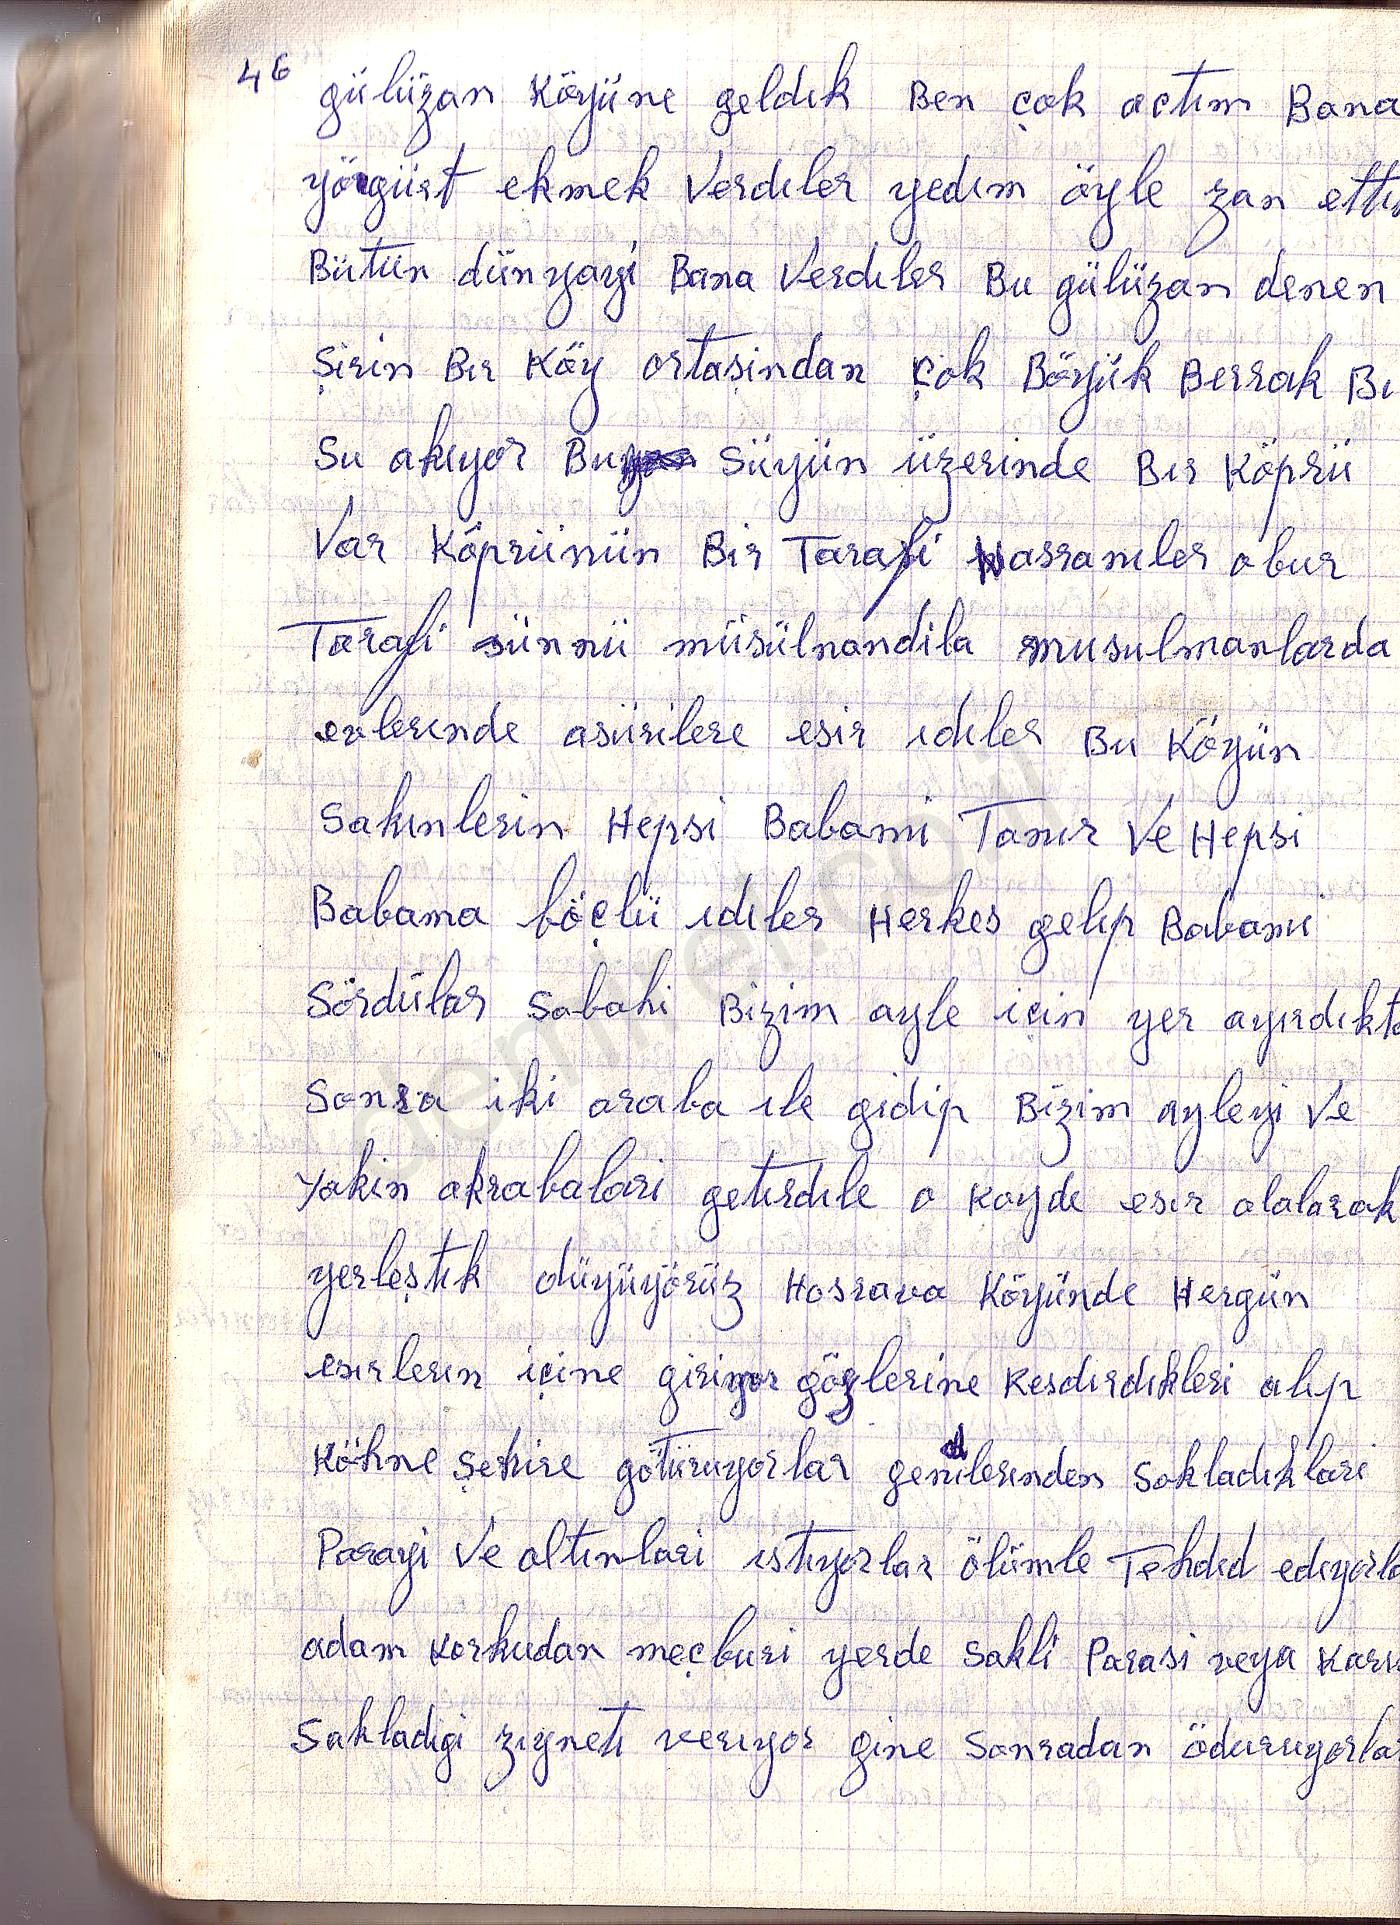 46
gülüzan Köyüne geldık Ben çok actım Bana
yörgürt ekmek Verdıler yedım öyle zan ettı
Bütün dünyayi Bana Verdıler Bu gülüzan denen
Şirin Bır Köy ortaşindan çok Böyük Berrak Bı
Su akıyor Bu Süyün üzerinde Bır Köprü
Var Köprünün Bir Tarafi Nasranıler obur
Tarafi sünnü müsülnandila musulmanlarda
evlerınde asürilere esir ıdıler Bu Köyün
Sakınlerin Hepsi Babami Tanır Ve Hepsi
Babama böçlü ıdıler Herkes gelıp Babami
Sördülar Sabahi Bizim ayle için yer ayırdıkta
Sonra iki araba ıle gidip Bizim ayleyi Ve
Yakin akrabalari getırdıle o koyde esır olalarak
yerleştık düyüyörüz Hosrava Köyünde Hergün
esırlerın içine giriyor gözlerine Kesdırdıkleri alıp
Köhne Şehire götüruyorlar gendilerınden Sakladıklari
Parayi Ve altınlari ıstıyorlar ölümle Tehdıd edıyorla
adam Korkudan meçburi yerde Sakli Parasi veya Karı
Sakladıgi zıynetı verıyor gine Sonradan öduruyorlar
demirel.co.il